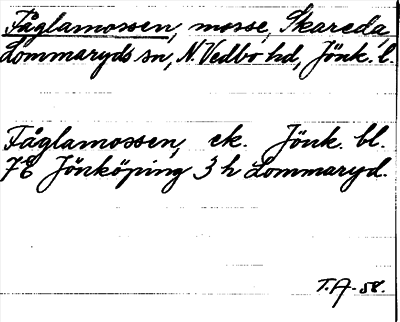 Fåglamossen, mosse, Skareda,
Lommaryds sn, N. Vedbo hd, Jönk. l.
Fåglamossen, ek. Jönk. bl.
7E Jönköping 3 h Lommaryd.
T.A-58.